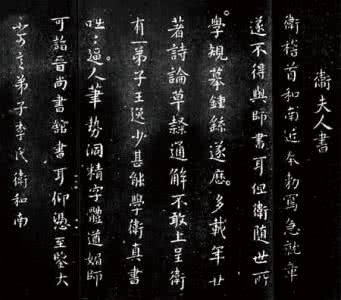 衛夫人書
衛稽首和南近奉勅寫急就章
遂不得與師書耳但衛隨世所
學規摹鍾繇遂歷多載年廿
著詩論草隸通解不敢上呈衛
有一弟子王逸少甚能學衛真書
咄々逼人筆勢洞精字體遒媚師
可詣晉尚書館書耳仰憑至鑒大
不可言弟子李氏衛和南